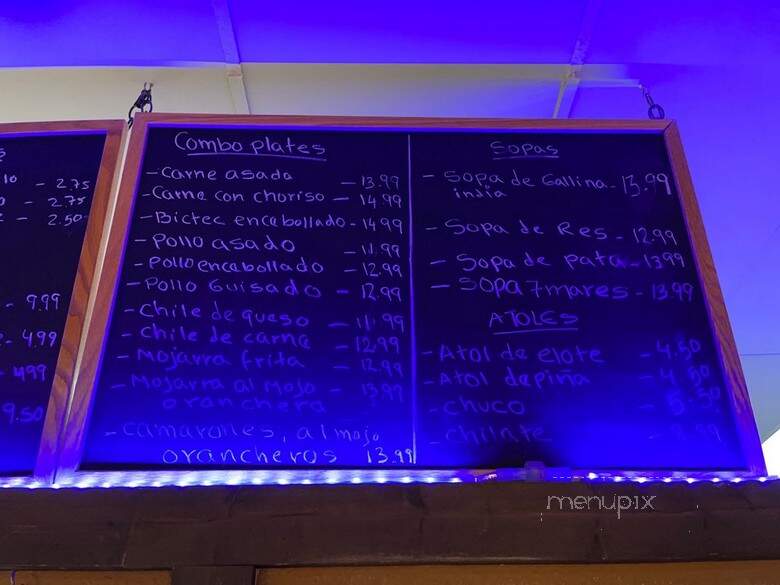 - 2.75
- 2.75
- 2.50
- 9.99
- 4.99
- 4.99
9.50
Combo plates
- Carne asada - 13.99
- Carne con choriso - 14.99
- Bictec encebollado - 14.99
- Pollo asado - 11.99
- Pollo encebollado - 12.99
- Pollo Guisado - 12.99
- Chile de queso - 11.99
- Chile de carne - 12.99
- Mojarra frita - 12.99
- Mojarra al mojo - 13.99
oranchera
- camarones, al mojo
orancheros 13.99
Sopas
- Sopa de Gallina - 13.99
india
- Sopa de Res - 12.99
- Sopa de pata - 13.99
- Sopa 7 mares - 13.99
ATOLES
- Atol de elote - 4.50
- Atol de piña - 4.50
- chuco - 5.50
- chilate
menupix